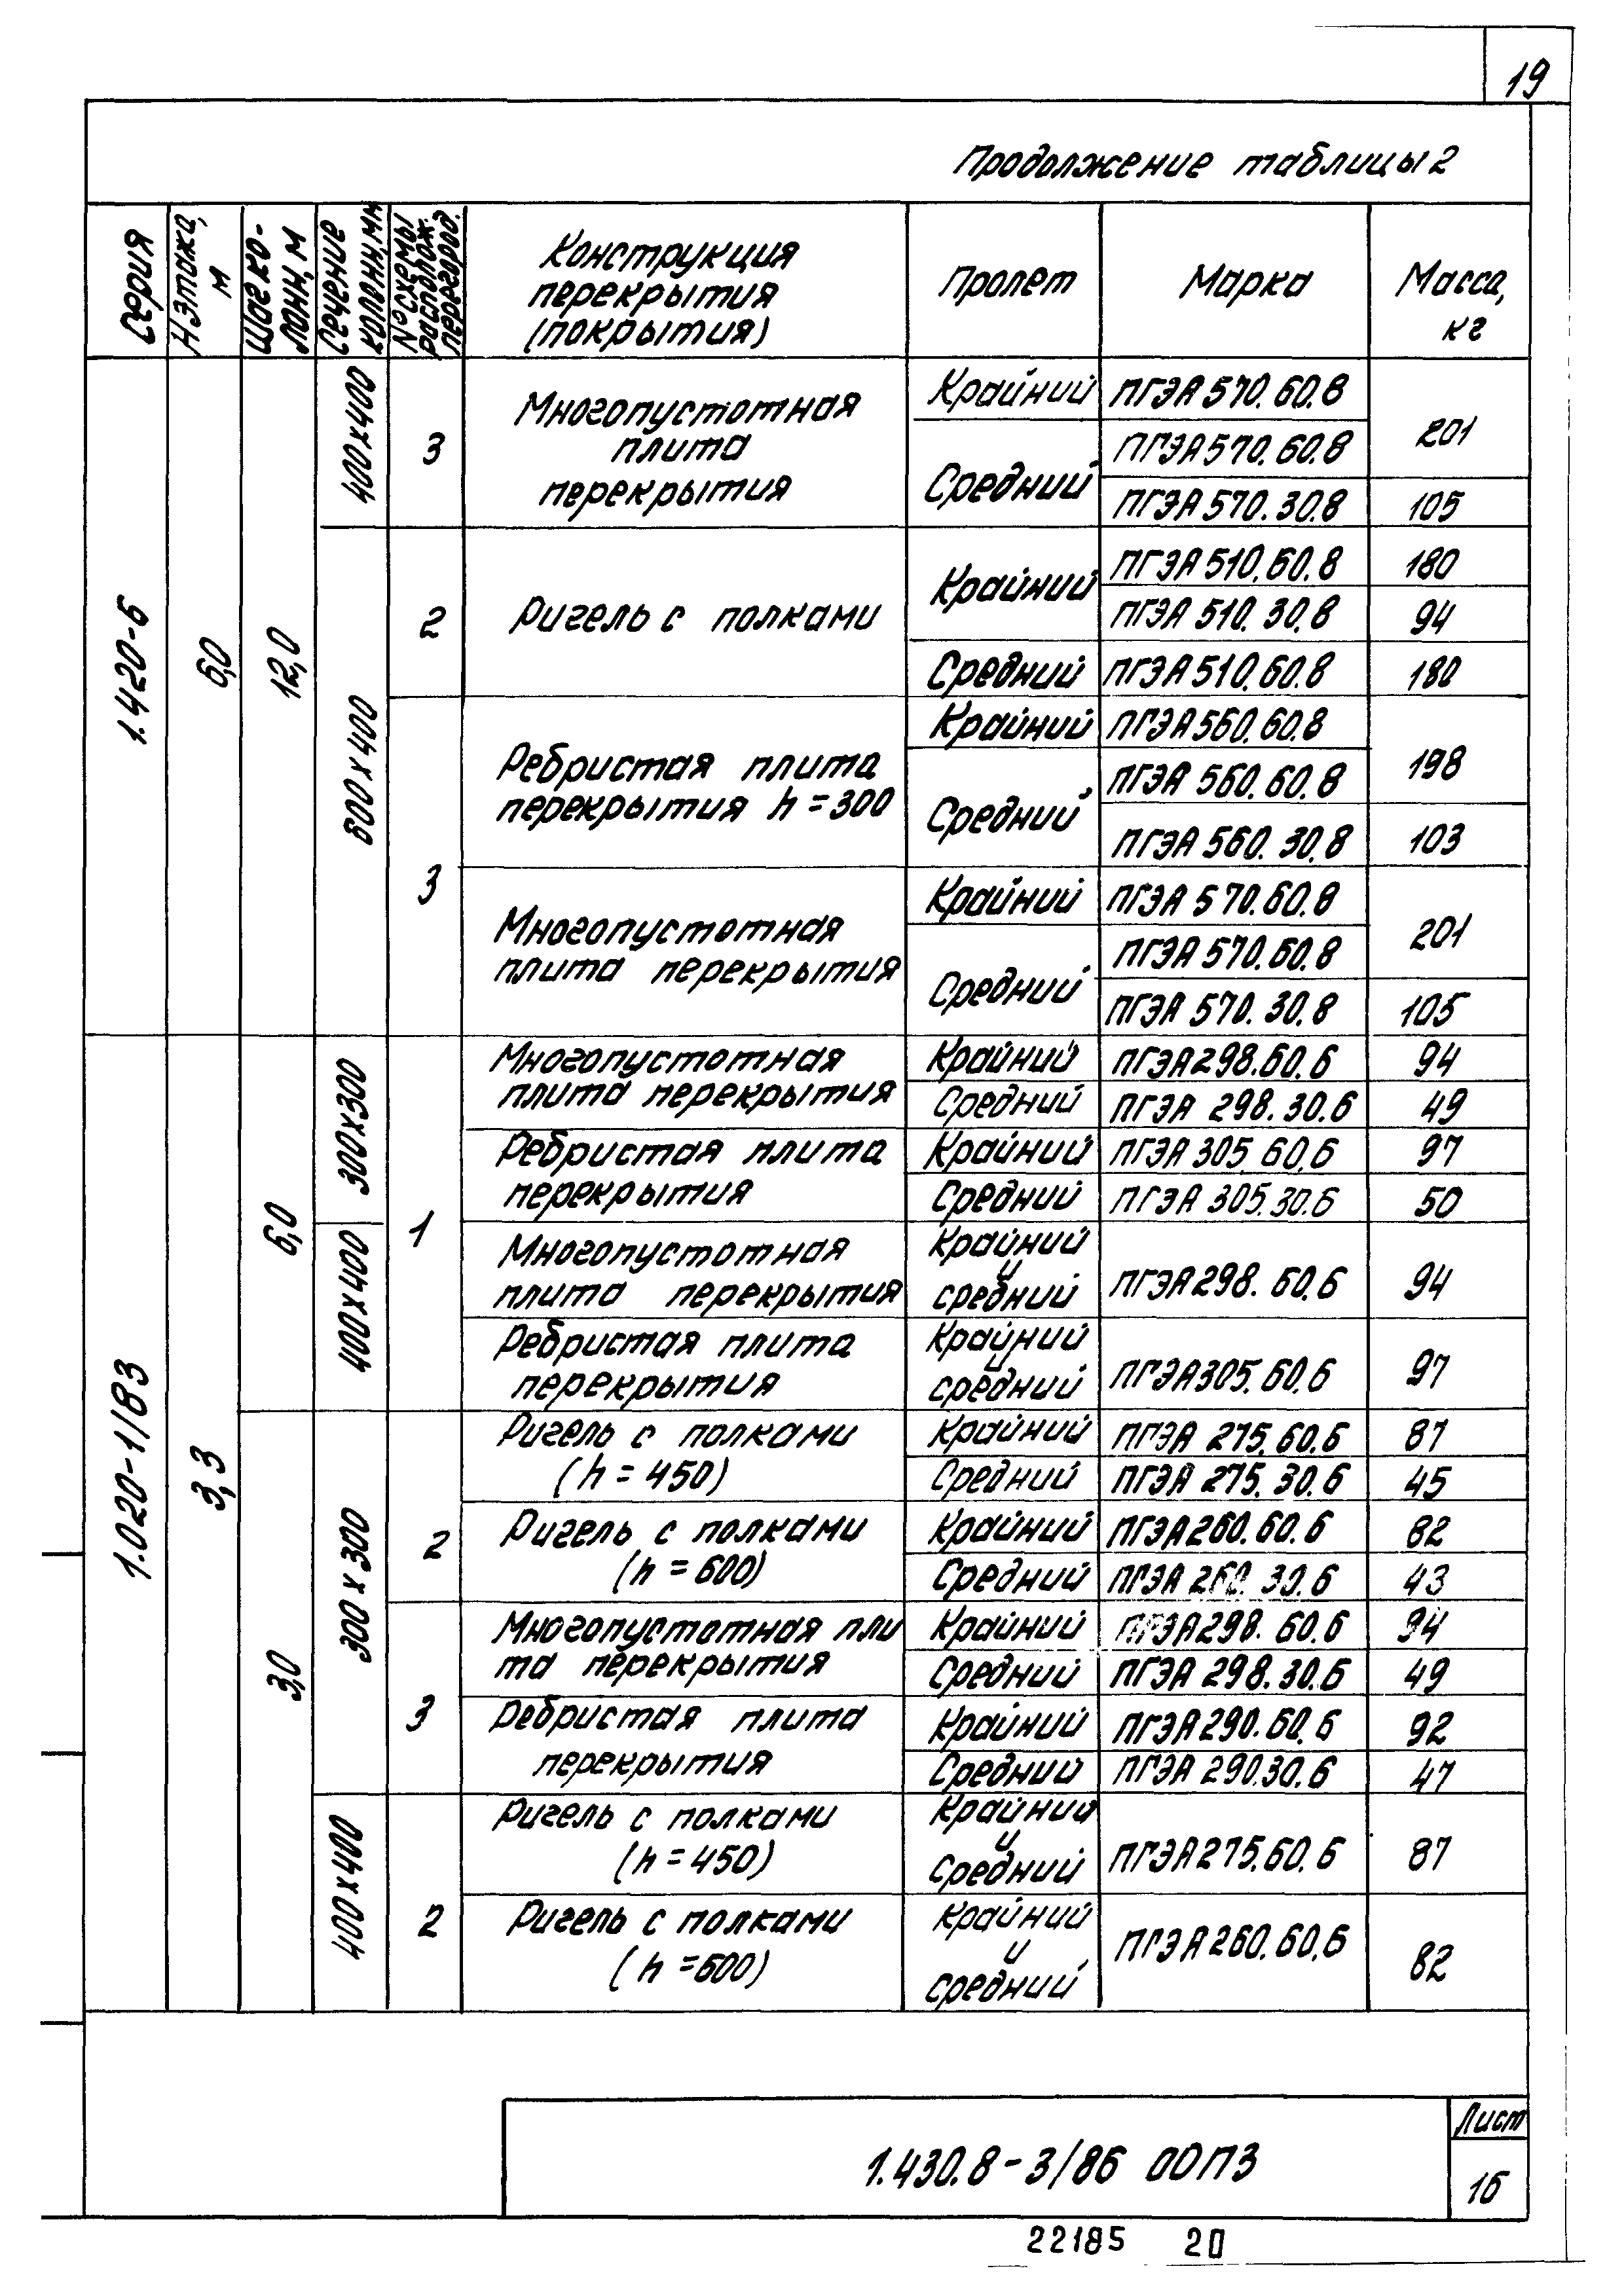 19
Продолжение таблицы 2
Серия
Н этажа, м
Шаг ко-
лонн, м
Сечение
колонн, мм
№ схемы
располож.
перегород.
Конструкция
перекрытия
(покрытия)
Пролет
Марка
Масса,
кг
1.420-6
6,0
12,0
400х400
3
Многопустотная
плита
перекрытия
Крайний ПГЭА 570.60.8
201
Средний
ПГЭА 570.60.8
ПГЭА 570.30.8 105
600х400
2
Ригель с полками
Крайний
ПГЭА 510.60.8 180
ПГЭА 510.30.8 94
Средний ПГЭА 510.60.8 180
3
Ребристая плита
перекрытия h=300
Крайний ПГЭА 560.60.8
198
Средний
ПГЭА 560.60.8
ПГЭА 560.30.8 103
Многопустотная
плита перекрытия
Крайний ПГЭА 570.60.8
201
Средний
ПГЭА 570.60.8
ПГЭА 570.30.8 105
1.020-1/83
3,3
6,0
300х300
1
Многопустотная
плита перекрытия
Крайний ПГЭА 298.60.6 94
Средний ПГЭА 298.30.6 49
Ребристая плита
перекрытия
Крайний ПГЭА 305.60.6 97
Средний ПГЭА 305.30.6 50
400х400
Многопустотная
плита перекрытия
Крайний
и
средний
ПГЭА 298.60.6 94
Ребристая плита
перекрытия
Крайний
и
средний
ПГЭА 305.60.6 97
3,0
300х300
2
Ригель с полками
(h=450)
Крайний ПГЭА 275.60.6 87
Средний ПГЭА 275.30.6 45
Ригель с полками
(h=600)
Крайний ПГЭА 260.60.6 82
Средний ПГЭА 260.30.6 43
3
Многопустотная пли
та перекрытия
Крайний ПГЭА 298.60.6 94
Средний ПГЭА 298.30.6 49
Ребристая плита
перекрытия
Крайний ПГЭА 290.60.6 92
Средний ПГЭА 290.30.6 47
400х400
2
Ригель с полками
(h=450)
Крайний
и
средний
ПГЭА 275.60.6 87
Ригель с полками
(h=600)
Крайний
и
средний
ПГЭА 260.60.6 82
1.430.8-3/86 00ПЗ
Лист
16
22185 20